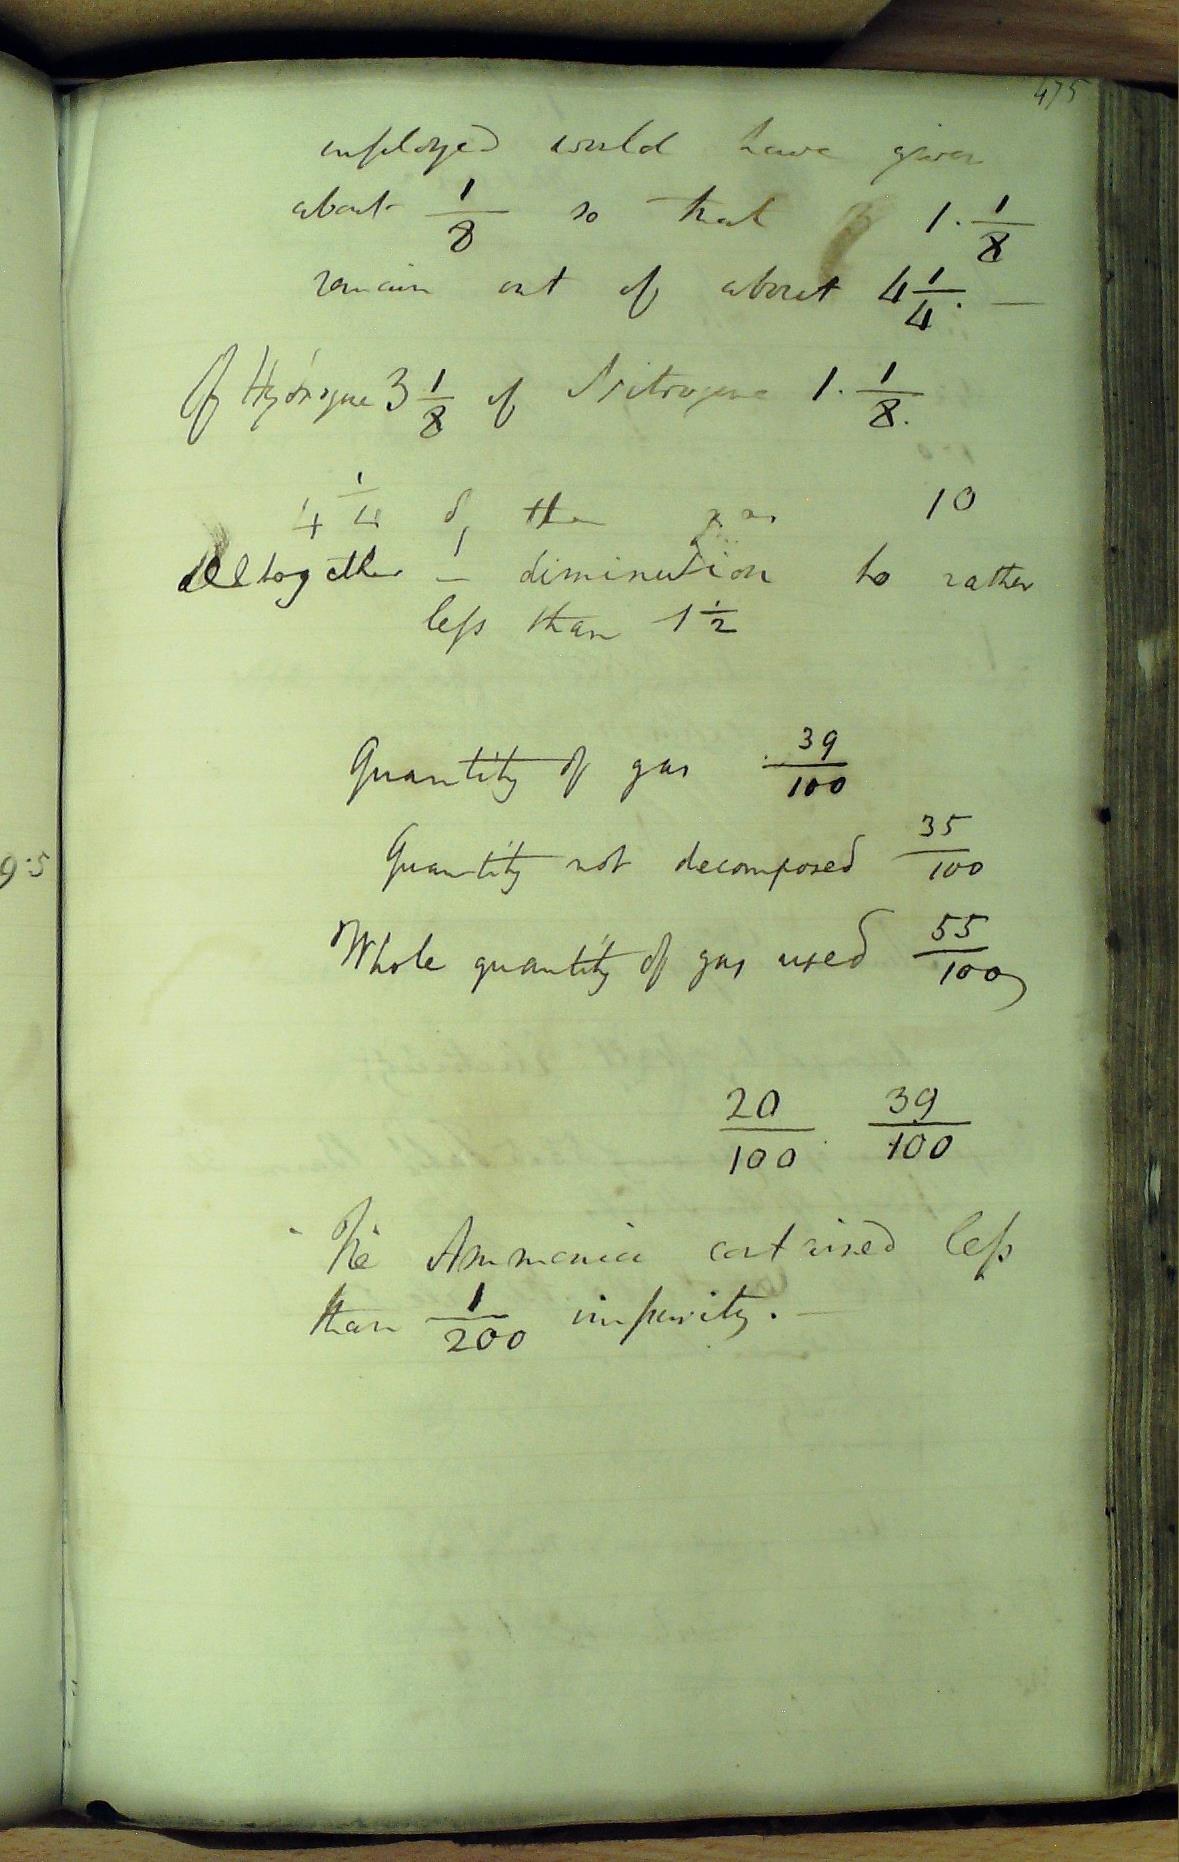 475
employed would have given
about 1/8 so that 1. 1/8
remain out of about 4 1/4. —
Of Hydrogene 3 1/8 of Nitrogene 1. 1/8.
4 1/4 of the gas 10
altogether — diminution to rather
less than 1 1/2
Quantity of gas 39/100
Quantity not decomposed 35/100
Whole quantity of gas used 55/100
20/100 39/100
The Ammonia contained less
than 1/200 impurity. —
9.5